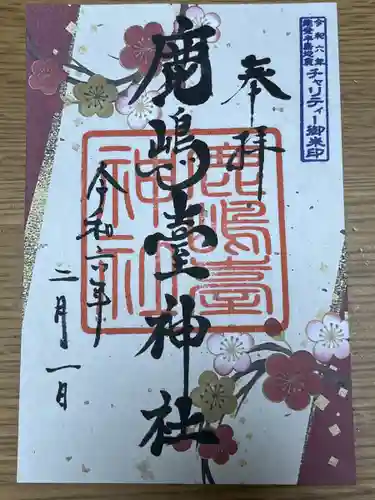 令和六年
能登半島地震
チャリティー御朱印
奉拝
鹿嶋臺神社
鹿嶋臺
神社
令和六年
二月一日